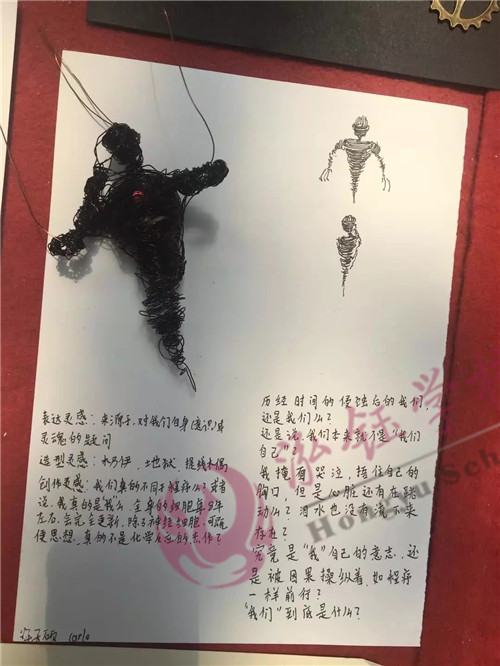 表达灵感：来源于，对我们自身(意识)与
灵魂的疑问
造型灵感：木乃伊、地狱、提线木偶
创作灵感：我们真的不同于程序么？或者
说，我真的是我么，全身的细胞每9年
左右，会完全更新，除了神经细胞，可就
使思想，真的不是化学反应的杰作？
历经时间的侵蚀后的我们，
还是我们么？
还是说，我们本来就不是“我们
自己”？
我掩面哭泣，捂住自己的
胸口，但是心脏还有在跳
动么？泪水也没有流下来
存在？
究竟是“我”自己的意志，还
是被因果操纵着，如程序
一样前行？
“我们”到底是什么？
carlo
泓钰学
Hongyu Sch